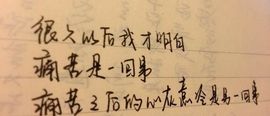 很久以后我才明白
痛苦是一回事
痛苦之后的以在意冷是另一回事